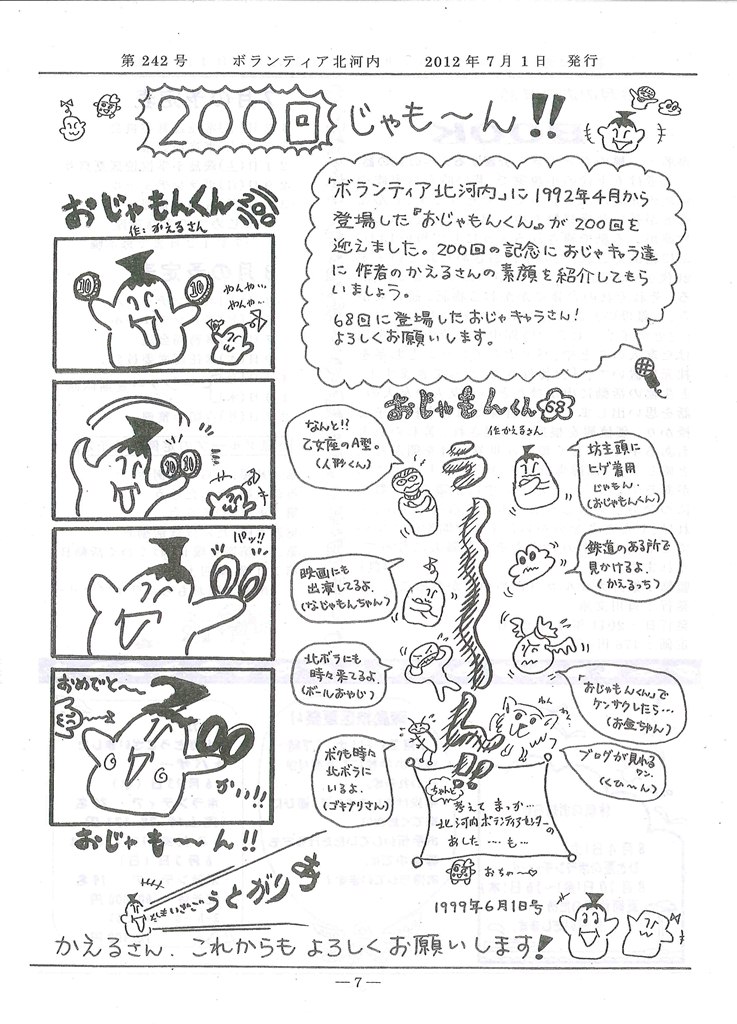 第242号 ボランティア北河内 2012年7月1日 発行
200回じゃも〜ん!!
「ボランティア北河内」に1992年4月から
登場した『おじゃもんくん』が200回を
迎えました。200回の記念におじゃキャラ達
に作者のかえるさんの素顔を紹介してもら
いましょう。
68回に登場したおじゃキャラさん!
よろしくお願いします。
おじゃもんくん200
作:かえるさん
10
10
やんや…
やんや…
!!
10
10
パッ!!
おめでと〜
かぃ…!!
おじゃも〜ん!!
おじゃもんくん68
作かえるさん
なんと!!
乙女座のA型。
(人形くん)
坊主頭に
ヒゲ着用
じゃもん.
(おじゃもんくん)
映画にも
出演してるよ.
(なじゃもんちゃん)
鉄道のある所で
見かけるよ.
(かえるっち)
北ボラにも
時々来てるよ.
(ボールおやじ)
「おじゃもんくん」で
ケンサクしたら…
(お金ちゃん)
ボクも時々
北ボラに
いるよ.
(ゴキブリさん)
わん
わん
ブログが見れる
ワン.
(くぴ〜ん)
ちゃんと
考えて まっか…
北河内ボランティアセンターの
あした…も…
おちゃ〜♡
1999年6月1日号
うとがり
かえるさん、これからも よろしくお願いします!
—7—